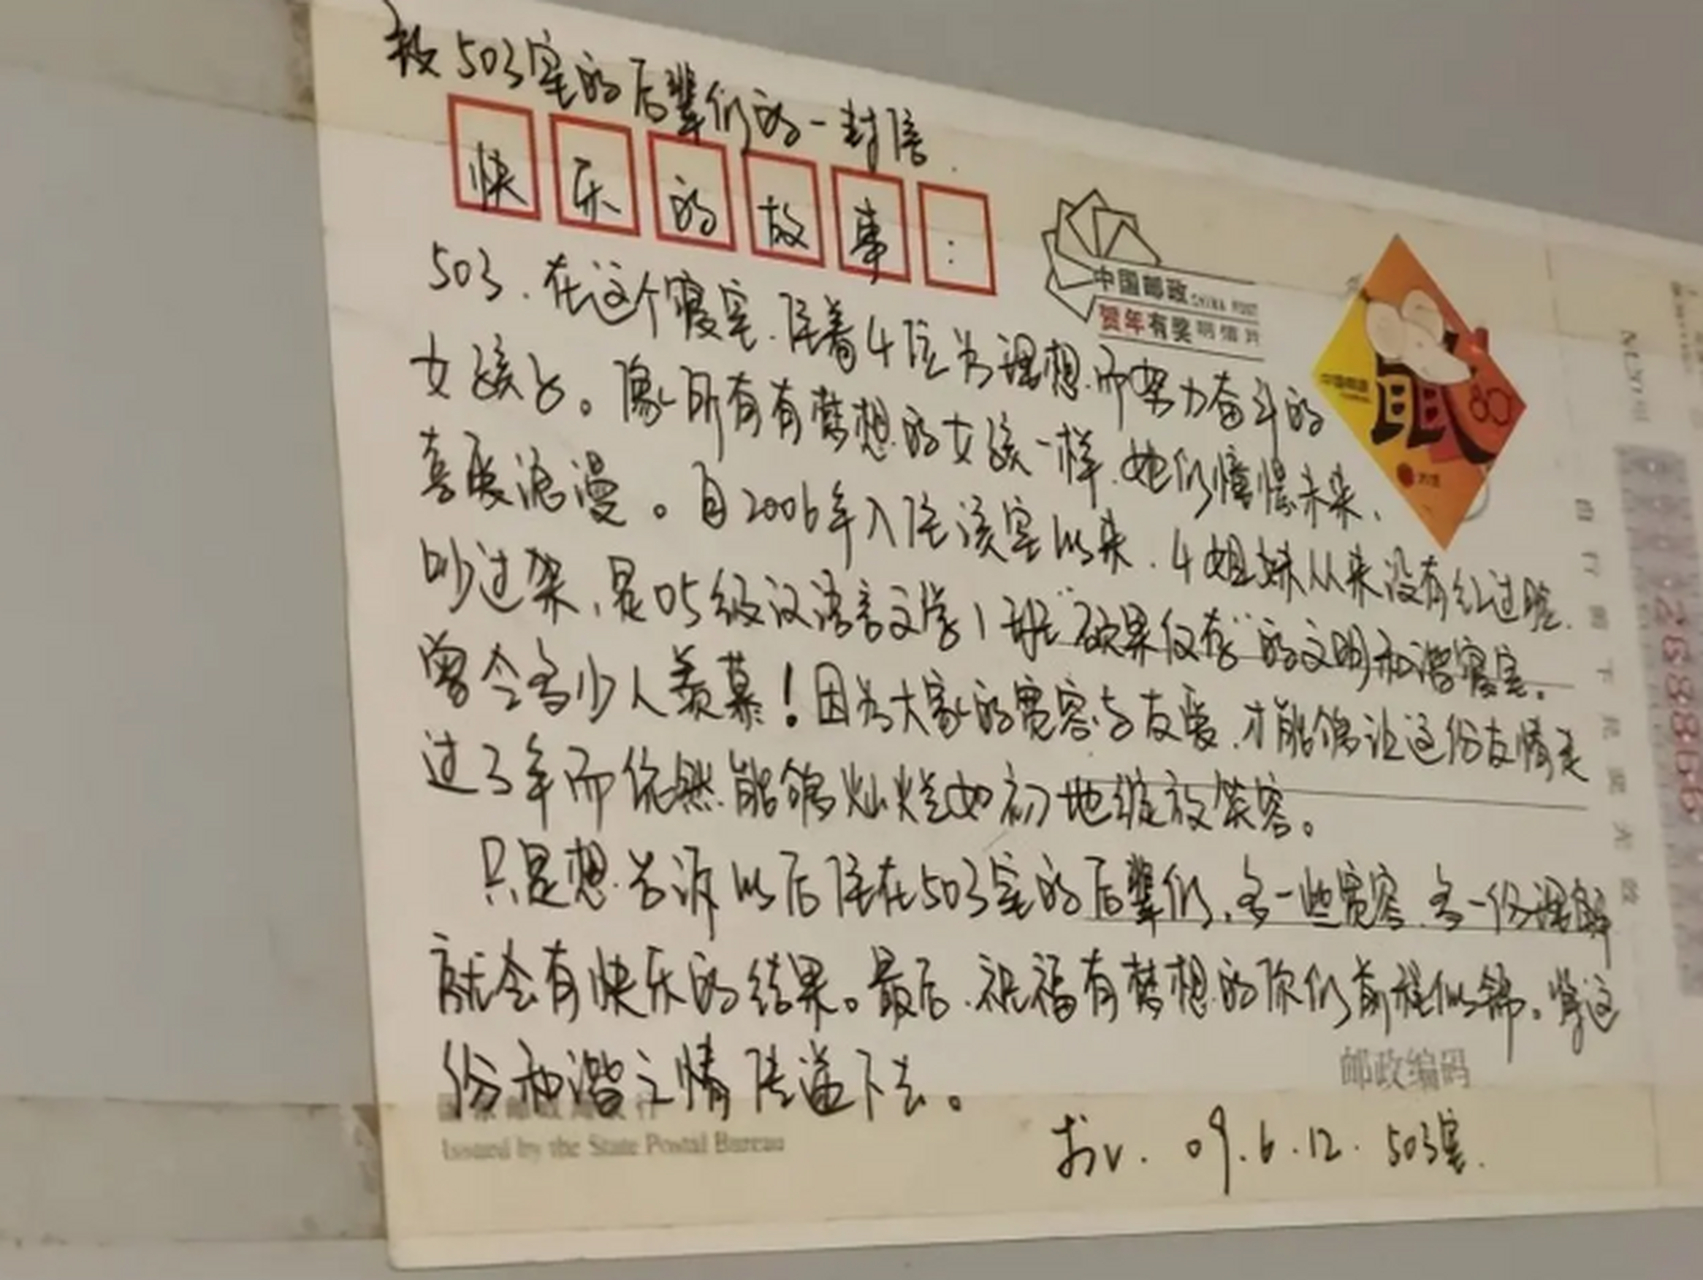 致503室的后辈们的一封信.
快乐的故事:
中国邮政 CHINA POST
贺年有奖明信片
503.在这个寝室.住着4位为理想而努力奋斗的
女孩子。像所有有梦想的女孩一样.她们憧憬未来.
喜爱浪漫。自2006年入住该室以来.4姐妹从来没有红过脸.
吵过架,是05级汉语言文学1班"硕果仅存"的文明和谐寝室。
曾令多少人羡慕!因为大家的宽容与友爱.才能够让这份友情走
过3年而依然能够灿烂如初地绽放笑容。
只是想告诉以后住在503室的后辈们,多一些宽容.多一份理解
就会有快乐的结果。最后.祝福有梦想的你们前程似锦。将这
份和谐之情传递下去。
邮政编码
国家邮政局发行
Issued by the State Postal Bureau
09.6.12. 503室.